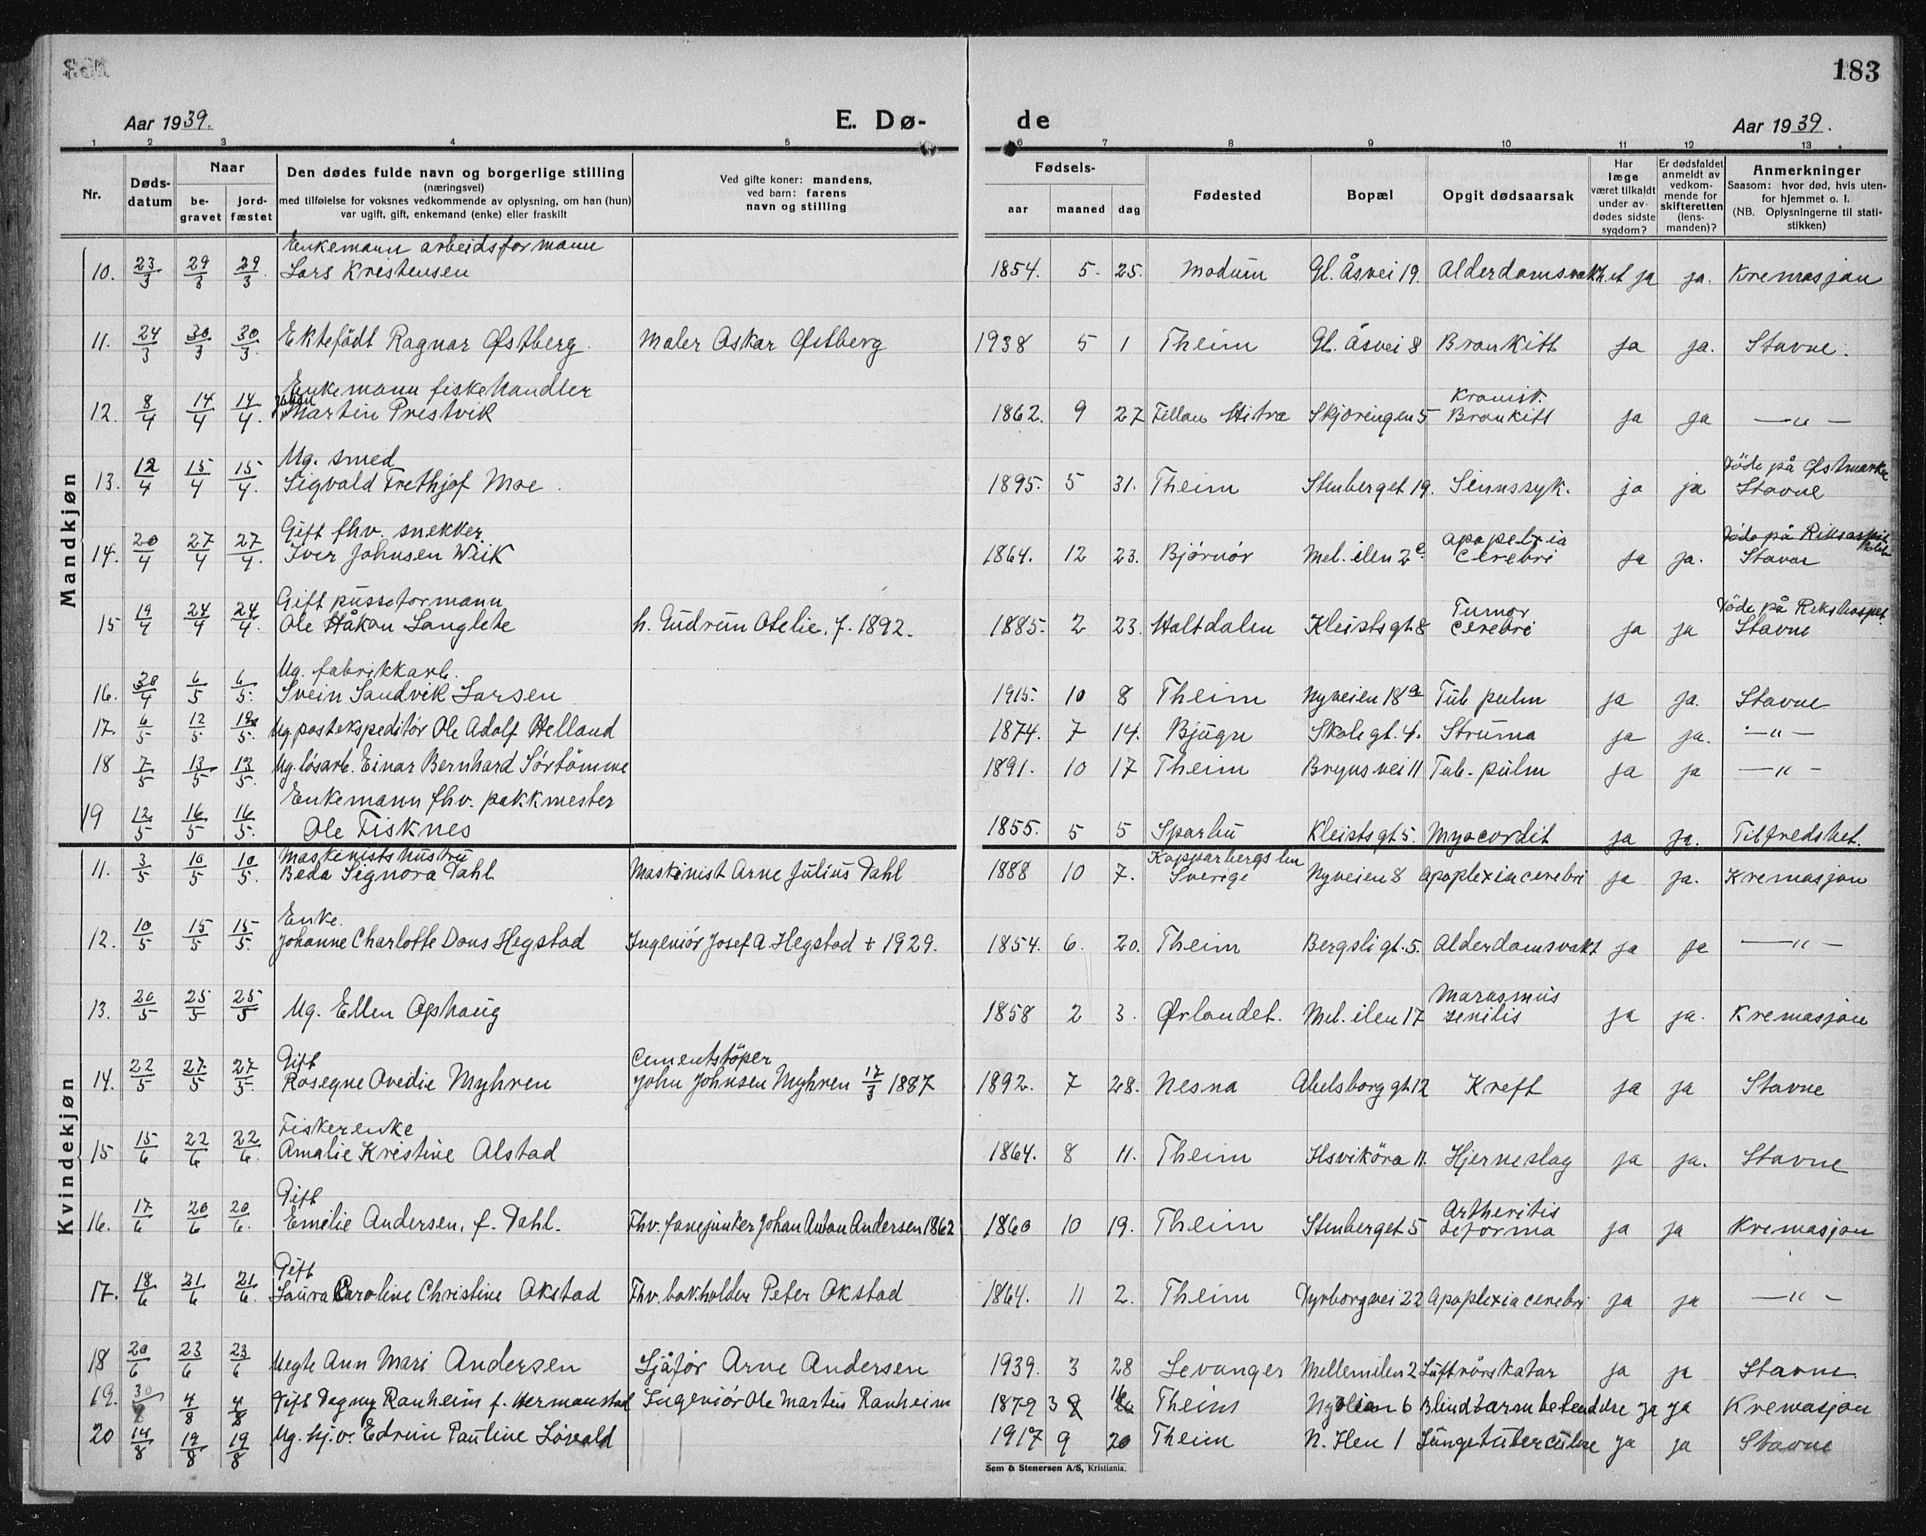 183
Aar 1939.
E. Dø-
de
Aar 1939.
1 2 3 4 5 6 7 8 9 10 11 12 13
Nr.
Døds-
datum
Naar
be-
gravet
jord-
fæstet
Den dødes fulde navn og borgerlige stilling
(næringsvei)
med tilføielse for voksnes vedkommende av oplysning, om han (hun)
var ugift, gift, enkemand (enke) eller fraskilt
Ved gifte koner: mandens,
ved barn: farens
navn og stilling
Fødsels-
aar maaned dag
Fødested
Bopæl
Opgit dødsaarsak
Har
læge
været tilkaldt
under av-
dødes sidste
sygdom?
Er dødsfaldet
anmeldt av
vedkom-
mende for
skifteretten
(lens-
manden)?
Anmerkninger
Saasom: hvor død, hvis uten-
for hjemmet o. l.
(NB. Oplysningerne til stati-
stikken)
Mandkjøn
Enkemann arbeidsformann
10. 23/3 29/3 29/3 Lars Kristensen 1854. 5. 25. Modum Gl. Åsvei 19. Alderdomsvakh.et ja ja. Kremasjon
11. 24/3 30/3 30/3. Ektefödt Ragnar Østberg. Maler Oskar Østberg 1938 5 1 Theim Gl. Åsvei 8 Bronkitt ja ja. Stavne.
Enkemann fiskehandler Kronist.
12. 8/4 14/4 14/4. Johan Martin Prestvik 1862. 9 27 Fillan Hitra Skjæringen 5 Bronkitt ja ja —"—
Ug. smed Døde på Østmarka
13. 12/4 15/4 15/4. Sigvald Frethjof Moe. 1895. 5 31. Theim Stenberget 19. Sinnssyk. ja ja Stavne
Gift fhv. snekker. apopelxia
14. 20/4 27/4 27/4. Iver Johnsen Wiik 1864. 12 23. Bjørnör Mel. ilen 2c. cerebri ja ja. Stavne
Gift pussaformann Tumor Døde på Rikshospet.
15 19/4 24/4 24/4. Ole Håkon Langlete h. Gudrun Otelie, f. 1892. 1885. 2 23. Haltdalen Kleistsgt 8 cerebri ja ja Stavne
Ug. fabrikkarb.
16. 30/4 6/5 6/5. Svein Sandvik Larsen 1915. 10 8 Theim Nyveien 18a Tub pulm ja ja. Stavne
17. 6/5 12/5 12/5. Ug. postekspeditör Ole Adolf Helland 1874. 7 14. Bjugn Skolegt. 4. Struma ja ja. —"—
18 7/5 13/5 13/5 Ug. løsarb. Einar Bernhard Sörtömme 1891. 10 17 Theim Brynsvei 11 Tub. pulm ja ja —"—
Enkemann fhv. pakkmester
19 12/5 16/5 16/5. Ole Fisknes 1855. 5 5 Sparbu Kleistsgt 5. Myocordit ja ja. Tilfredshet.
Kvindekjøn
Maskinistshustru Kopparbergs len
11. 3/5 10/5 10/5. Beda Signora Dahl Maskinist Arne Julius Dahl 1888 10 7. Sverige Nyveien 8 Apoplexia cerebri ja ja. Kremasjon
Enke.
12. 10/5 15/5 15/5. Johanne Charlotte Dons Hegstad Ingeniör Josef A. Hegstad + 1929. 1854. 6. 20. Theim Bergsligt. 5. Alderdomsvakt ja ja —"—
Marasmus
13. 20/5 25/5 25/5 Ug. Ellen Ophaug 1858 2 3. Ørlandet. Mel. ilen 17 senilis ja ja. Kremasjon
Gift Cementstöper
14. 22/5 27/5 27/5. Rosegne Ovedie Myhren John Johnsen Myhren 17/3 1887 1892. 7 28. Nesna Abelsborg gt 12 Kreft ja ja Stavne
Fiskerenke
15 15/6 22/6 22/6. Amalie Kristine Alstad 1864. 8 11. Theim Ilsviköra 11. Hjerneslag ja ja. Stavne
Gift Artheritis
16. 17/6 20/6 20/6. Emelie Andersen, f. Dahl. Fhv. fanejunker Johan Anton Andersen 1862 1860 10 19. Theim Stenberget 5 deforma ja ja Kremasjon
Gift
17. 18/6 21/6 21/6. Laura Caroline Christine Okstad Fhv. bokholder Peter Okstad 1864. 11 2. Theim Dyrborgvei 22 Apoplexia cerebri ja ja —"—
18 20/6 23/6 23/6 Uegte Ann Mari Andersen Sjåför Arne Andersen 1939. 3 28 Levanger Mellemilen 2 Luftrörskatar ja ja Stavne
19. 30/ 4/8 4/8 Gift Dagny Ranheim f. Hermanstad Ingeniör Ole Martin Ranheim 1879 3 16 Theim 6 Blindtarmbetendelse ja ja Kremasjon
20 14/8 19/8 19/8 Ug. hj.v. Edrun Pauline Lövald 1917 9 20 Theim N. Ilen 1 Lungetuberculose ja ja Stavne
Sem & Stenersen A/S, Kristiania.